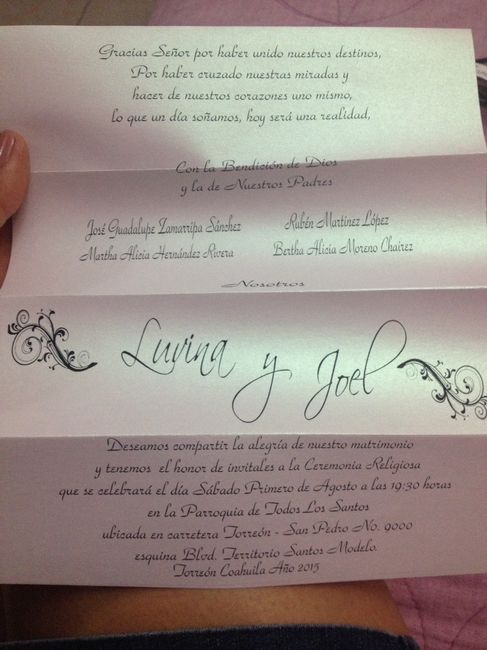 Gracias Señor por haber unido nuestros destinos,
Por haber cruzado nuestras miradas y
hacer de nuestros corazones uno mismo,
lo que un día soñamos, hoy será una realidad,
Con la Bendición de Dios
y la de Nuestros Padres
José Guadalupe Zamarripa Sánchez
Martha Alicia Hernández Rivera
Rubén Martínez López
Bertha Alicia Moreno Chairez
Nosotros
Luvina y Joel
Deseamos compartir la alegría de nuestro matrimonio
y tenemos el honor de invitales a la Ceremonia Religiosa
que se celebrará el día Sábado Primero de Agosto a las 19:30 horas
en la Parroquia de Todos Los Santos
ubicada en carretera Torreón - San Pedro No. 9000
esquina Blvd. Territorio Santos Modelo.
Torreón Coahuila Año 2015